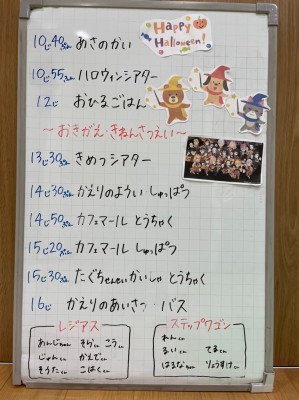 Happy
Halloween!
10じ40ぷん あさのかい
10じ55ふん ハロウィンシアター
12じ おひるごはん
～おきがえ・きねんさつえい～
13じ30ぷん きめつシアター
14じ30ぷん かえりのようい しゅっぱつ
14じ50ぷん カフェマール とうちゃく
15じ20ぷん カフェマール しゅっぱつ
15じ30ぷん たくちゃんせいかいしゃ とうちゃく
16じ かえりのあいさつ・バス
レジアス
あんじちゃん そらくん こうくん
じゅんくん かえでくん
そうたくん こはくくん
ステップワゴン
れんくん
るいくん てるくん
はるなちゃん りょうすけくん